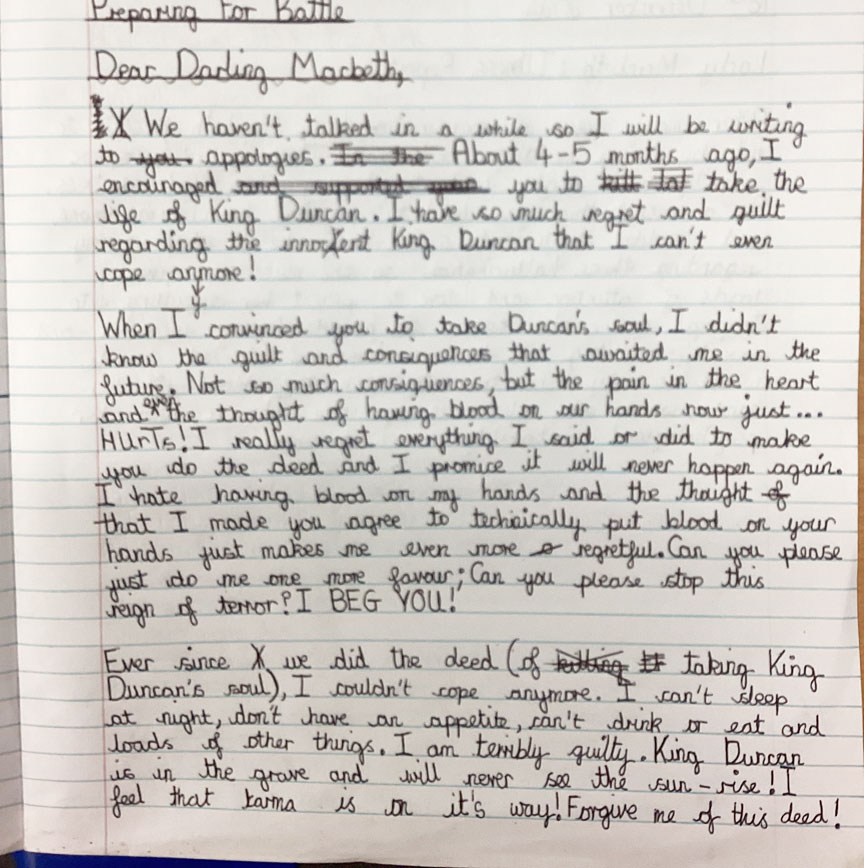 Preparing For Battle
Dear Darling Macbeth,
We haven't talked in a while so I will be writing
to you appologies. In the About 4-5 months ago, I
encouraged and supported you you to kill take the
life of King Duncan. I have so much regret and guilt
regarding the innocent King Duncan that I can't even
cope anymore!
y
When I convinced you to take Duncan's soul, I didn't
know the guilt and consiquences that awaited me in the
future. Not so much consiquences, but the pain in the heart
and even the thought of having blood on our hands now just...
HUrTs! I really regret everything I said or did to make
you do the deed and I promice it will never happen again.
I hate having blood on my hands and the thought of
that I made you agree to technically put blood on your
hands just makes me even more regretful. Can you please
just do me one more favour; Can you please stop this
reign of terror? I BEG YOU!
Ever since we did the deed (of killing taking King
Duncan's soul), I couldn't cope anymore. I can't sleep
at night, don't have an appetite, can't drink or eat and
loads of other things. I am terribly guilty. King Duncan
is in the grave and will never see the sun-rise! I
feel that karma is on it's way! Forgive me of this deed!